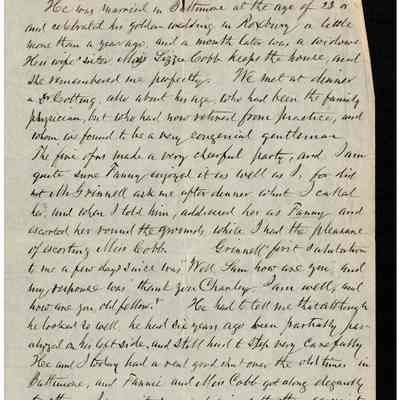 He was married in Baltimore at the age of 23 a
and celebrated his golden wedding in Roxbury a little
more than a year ago, and a month later was a widower
His wife's sister Miss Lizzie Cobb keeps the house, and
she remembered me perfectly. We met at dinner
a Dr Cotting, also about his age, who had been the family
physician, but who had now retired from practice, and
whom we found to be a very congenial gentleman
The five of us made a very cheerful party, and I am
quite sure Fanny enjoyed it as well as I, for did
not Mr Grinnell ask me after dinner what I called
her, and when I told him, addressed her as Fanny and
escorted her round the grounds while I had the pleasure
of escorting Miss Cobb. Grinnell' first salutation
to me a few days since was "Well Sam how are you, and
my response was "thank you Charley, I am well, and
how are you, old fellow." He had to tell me that although
he looked so well he had six years ago been partially par-
alyzed on his left side, and still had to step very carefully
He and I today had a real good chat over the old times in
Baltimore, and Fannie and Miss Cobb got along elegantly